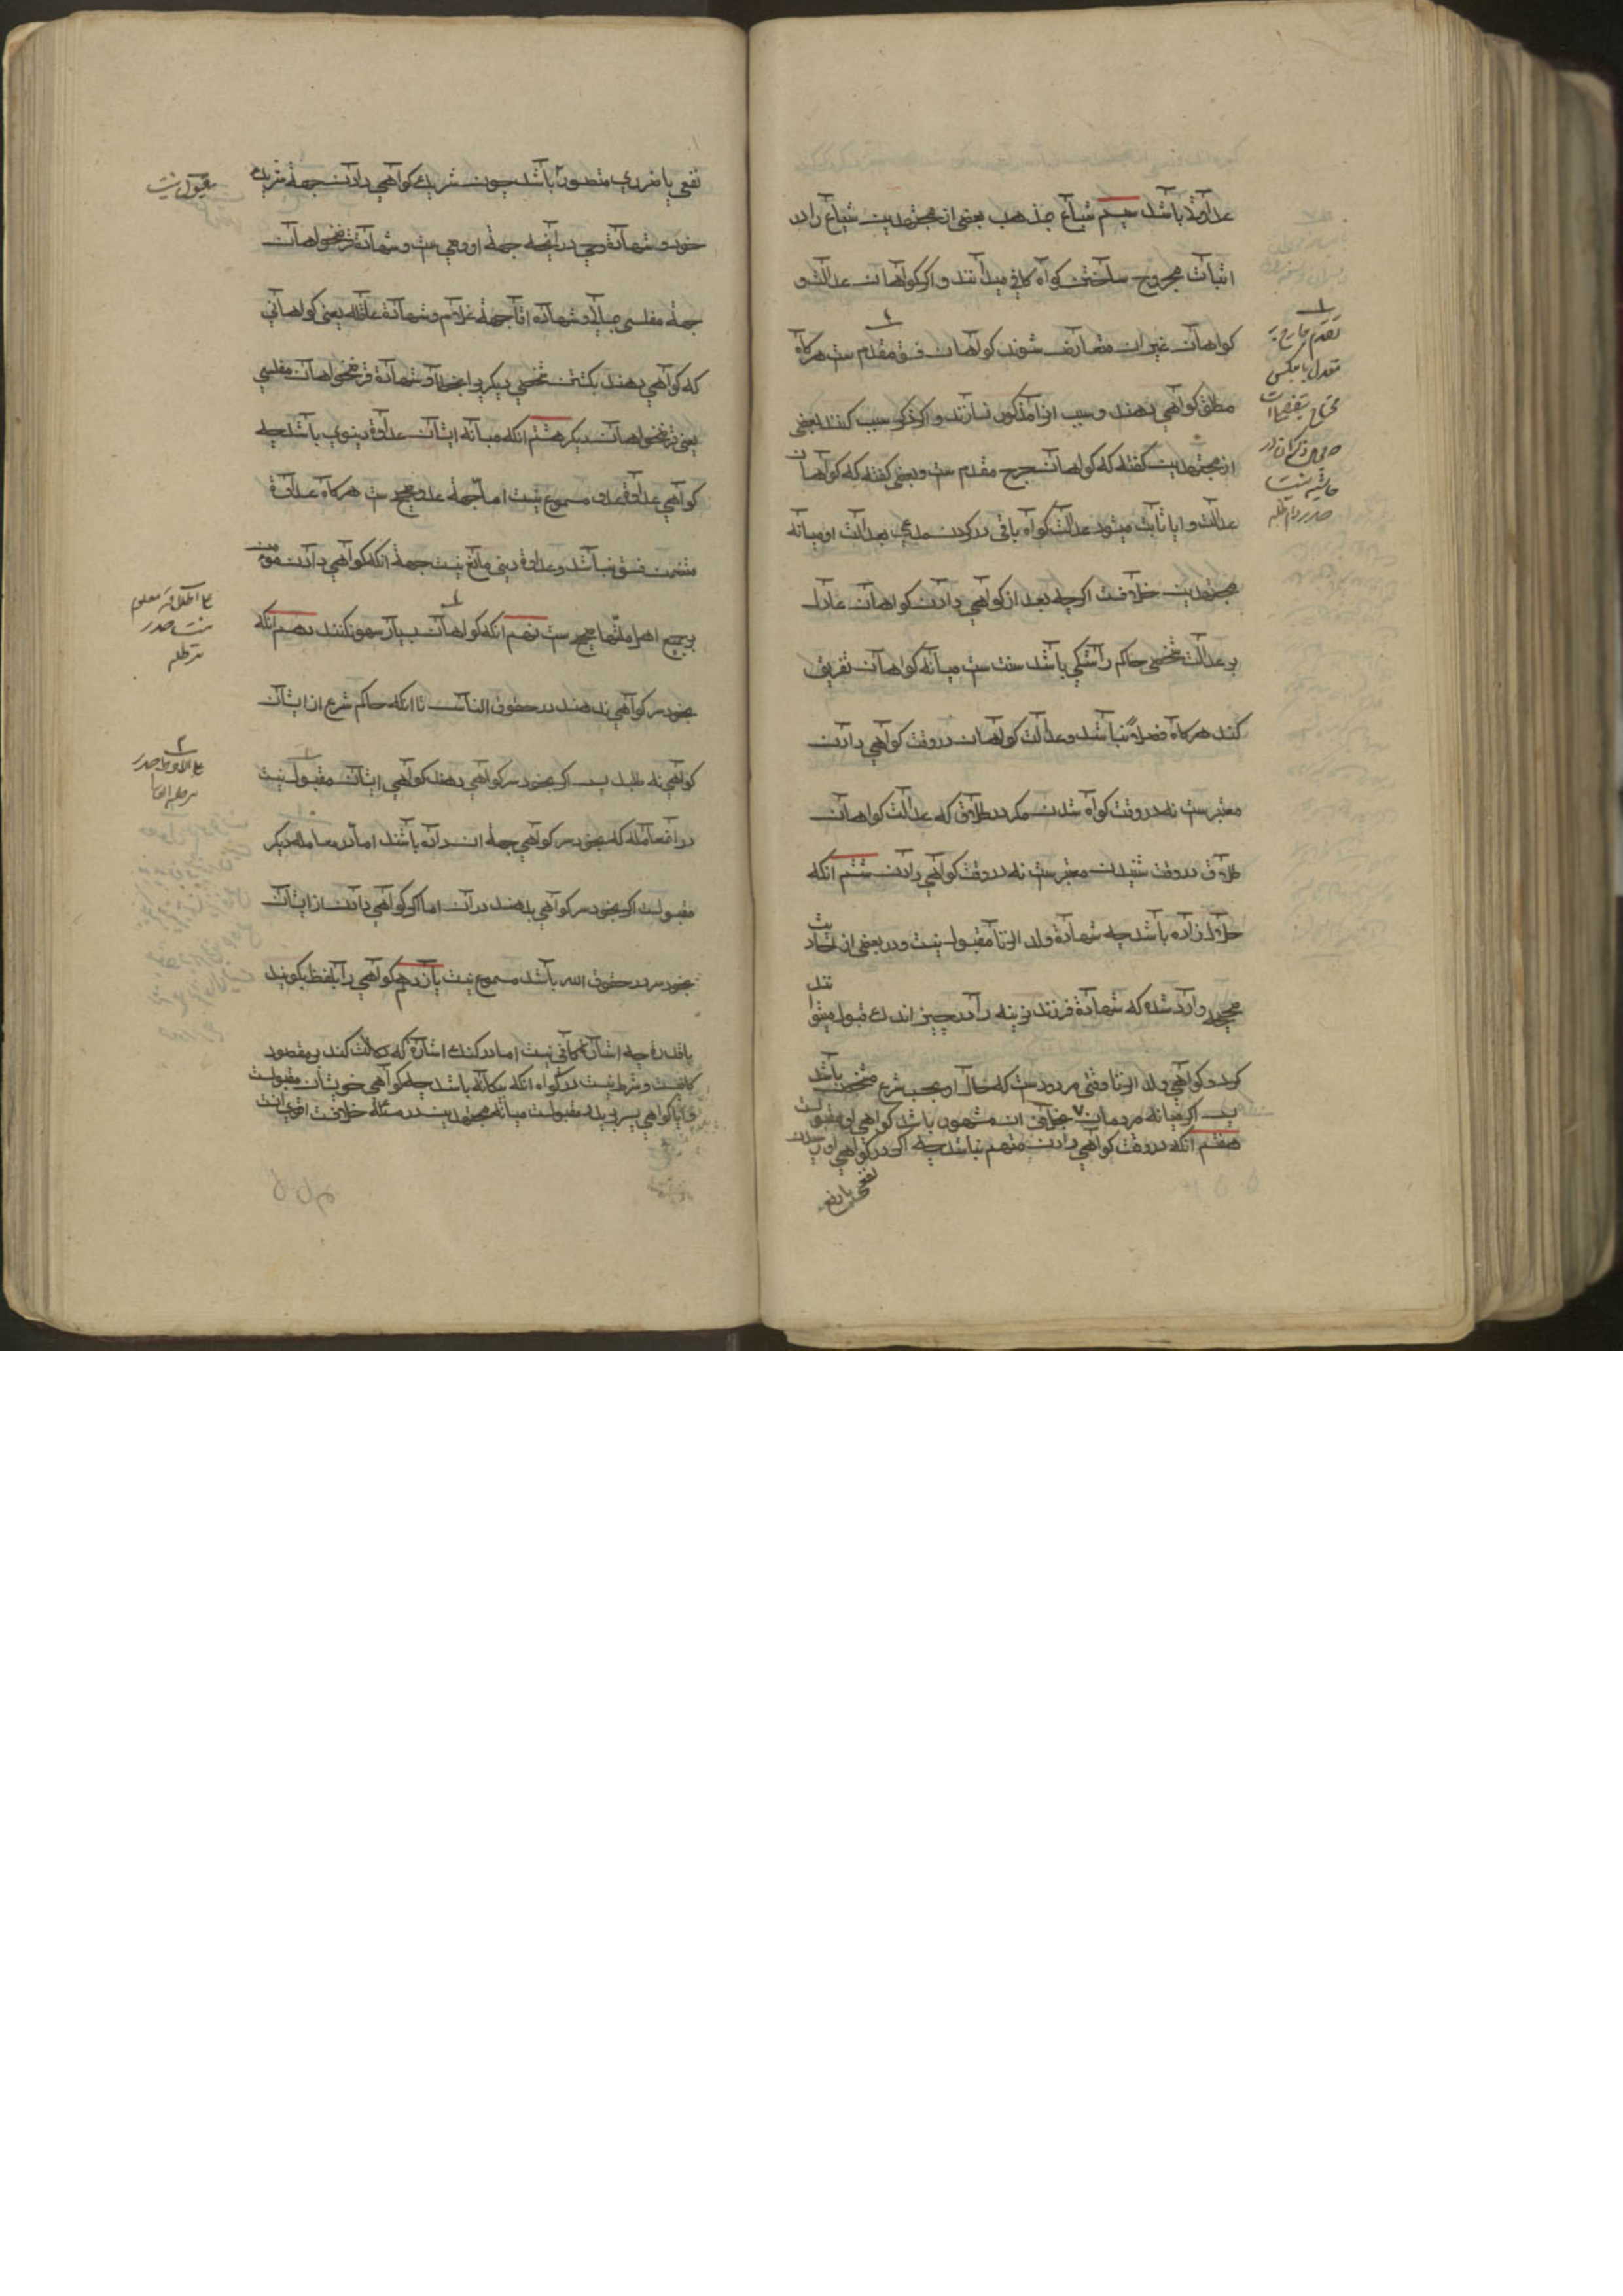 عداوة باشد سیم شیاع چه مذهب بعضی از مجتهدین شیاع را در
اثبات مجروح ساختن گواه کافی میدانند و اگر گواهان عدالت و
گواهان غیر ان متعارض شوند گواهان فسق مقدم ست هرگاه
مطلق گواهی دهند و سبب انرا مذکور نسازند و اگر ذکر سبب کنند بعضی
از مجتهدین گفته که گواهان جرح مقدم ست و بعضی گفته که گواهان
عدالت و ایا ثابت میشود عدالت گواه باقرار کردن مدعی بعدالت او میانه
مجتهدین خلافست اگرچه بعد از گواهی دادن گواهان عادل
بر عدالت شخصی حاکم را شکی باشد سنت ست میانه گواهان تفریق
کند هرگاه فضلا نباشند و عدالت گواهان در وقت گواهی دادن
معتبر ست نه در وقت گواه شدن مگر در طلاق که عدالت گواهان
طلاق در وقت شنیدن معتبر ست نه در وقت گواهی دادن ششم انکه
حلال زاده باشد چه شهادة ولد الزنا مقبول نیست و در بعضی از احادیث
صحیحه وارد شده که شهادة فرزند زینه را در چیز اندک قبول میتوانند
کرد و گواهی ولد الزنا وقتی مردودست که حال او بحسب شرع مشخص باشد
پس اگر میانه مردمان بخلاف ان مشهور باشد گواهی او مقبولست
هفتم انکه در وقت گواهی دادن متهم نباشد چه اگر در گواهی او
نفعی یا ضرر
تقدم جارح بر
معدل یا بعکس
محتاج بتفصیل است
حاشیه نیست
صدر دام ظله
نفعی یا ضرری متصور باشد چون شریک گواهی دادن جهة شریک
خود و شهادة وصی در آنچه جهة او وصی ست و شهادة قرضخواهان
جهة مفلسی و شهاده اقا جهة غلام و شهادة عاقله یعنی گواهانی
که گواهی دهند بکشتن شخصی دیگر یرا بخطا و شهادة قرضخواهان مفلسی
یعنی قرضخواهان دیگر هشتم انکه میانه ایشان عداوة دنیوی باشد چه
گواهی عداوة عدو مسموع نیست اما جهة عدو صحیح ست هرگاه عداوة
متضمن فسق نباشد و عداوة دینی مانع نیست جهة انکه گواهی دادن مومن
بر جمیع اهل ملتها صحیح ست نهم انکه گواهان بسیار سهو نکنند دهم انکه
بخود سر گواهی ندهند در حقوق الناس تا انکه حاکم شرع از ایشان
گواهی نه طلبد پس اگر بخود سر گواهی دهند گواهی ایشان مقبول نیست
در ان معامله که بخود سر گواهی جهة ان داده باشند اما در معامله دیگر
مقبولست اگر بخود سر گواهی بدهند در ان اما اگر گواهی دادن از ایشان
بخود سر در حقوق الله باشد مسموع نیست یازدهم گواهی را بلفظ بگویند
باقدرة چه اشارة کافی نیست اما در گنک اشارة که دلالت کند بر مقصود
کافیست و شرط نیست در گواه انکه بیگانه باشد چه گواهی خویشان مقبولست
و ایا گواهی پسر بر پدر مقبولست میانه مجتهدین در مسئله خلافست اقوی انست
مقبول نیست
علی اطلاقه معلوم
نیست صدر
مد ظله
علی الاحوط صدر